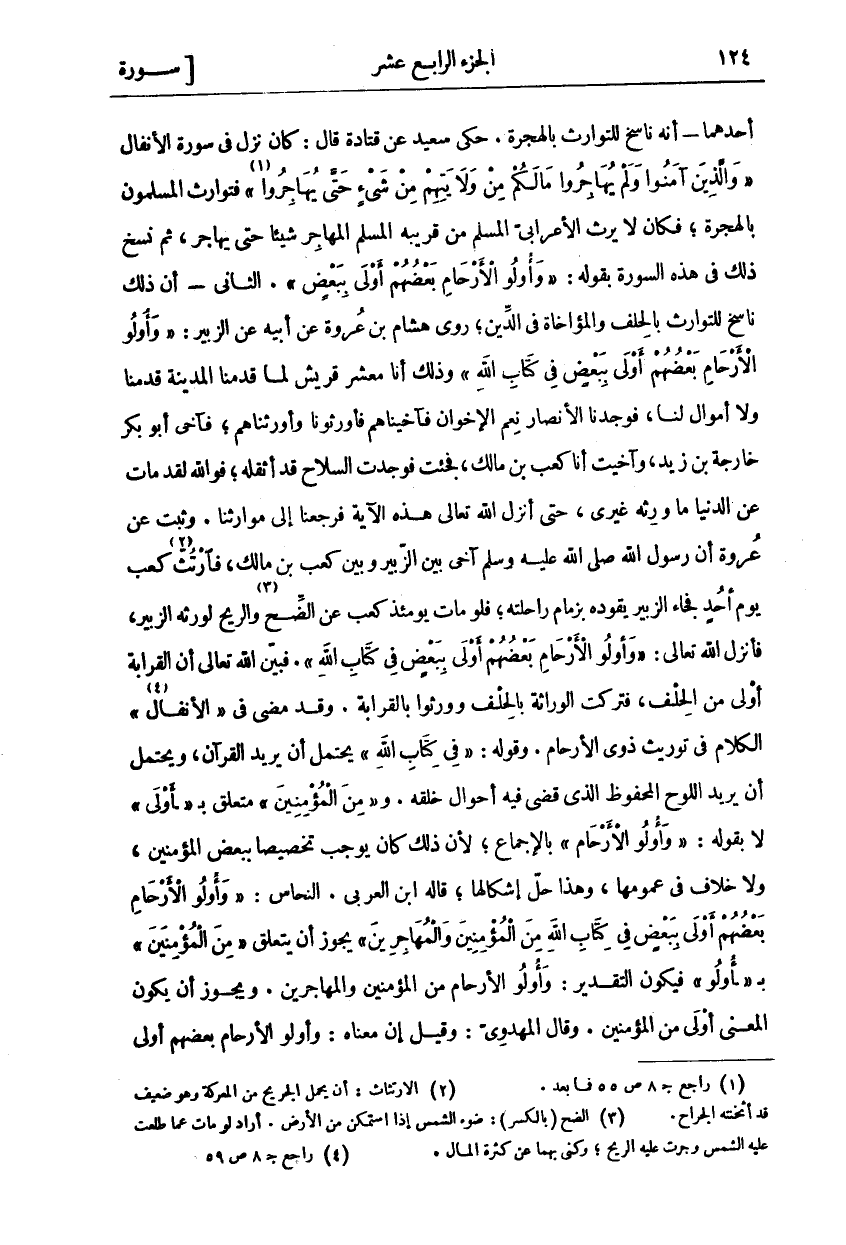 ١٢٤ الجزء الرابع عشر [ ســورة
أحدهما – أنه ناسخ للتوارث بالهجرة . حكى سعيد عن قتادة قال : كان نزل فى سورة الأنفال
« وَالَّذِينَ آمَنُوا وَلَمْ يُهَاجِرُوا مَالَكُمْ مِنْ وَلَايَتِهِمْ مِنْ شَيْءٍ حَتَّى يُهَاجِرُوا (١) » فتوارث المسلمون
بالهجرة ؛ فكان لا يرث الأعرابىّ المسلم من قريبه المسلم المهاجر شيئا حتى يهاجر ، ثم نسخ
ذلك فى هذه السورة بقوله : « وَأُولُو الْأَرْحَامِ بَعْضُهُمْ أَوْلَى بِبَعْضٍ » . الثانى – أن ذلك
ناسخ للتوارث بالحلف والمؤاخاة فى الدِّين ؛ روى هشام بن عُروة عن أبيه عن الزبير : « وَأُولُو
الْأَرْحَامِ بَعْضُهُمْ أَوْلَى بِبَعْضٍ فِي كِتَابِ اللَّهِ » وذلك أنا معشر قريش لمــا قدمنا المدينة قدمنا
ولا أموال لنــا ، فوجدنا الأنصار نِعم الإخوان فآخيناهم فأورثونا وأورثناهم ؛ فآخى أبو بكر
خارجة بن زيد ، وآخيت أنا كعب بن مالك ، فجئت فوجدت السلاح قد أثقله ؛ فوالله لقد مات
عن الدنيا ما ورِثه غيرى ، حتى أنزل الله تعالى هــذه الآية فرجعنا إلى موارثنا . وثبت عن
عُروة أن رسول الله صلى الله عليــه وسلم آخى بين الزّبير وبين كعب بن مالك ، فآرْتُثّ (٢) كعب
يوم أُحُدٍ فجاء الزبير يقوده بزمام راحلته ؛ فلو مات يومئذ كعب عن الضِّــح (٣) والريح لورثه الزبير ،
فأنزل الله تعالى : « وَأُولُو الْأَرْحَامِ بَعْضُهُمْ أَوْلَى بِبَعْضٍ فِي كِتَابِ اللَّهِ » . فبيّن الله تعالى أن القرابة
أوْلى من الحِلْف ، فتركت الوراثة بالحلْف وورثوا بالقرابة . وقــد مضى فى « الأنفــال (٤) »
الكلام فى توريث ذوى الأرحام . وقوله : « فِي كِتَابِ اللَّهِ » يحتمل أن يريد القرآن ، ويحتمل
أن يريد اللوح المحفوظ الذى قضى فيه أحوال خلقه . و« مِنَ الْمُؤْمِنِينَ » متعلق بـ « ـأَوْلَى »
لا بقوله : « وَأُولُو الْأَرْحَامِ » بالإجماع ؛ لأن ذلك كان يوجب تخصيصا ببعض المؤمنين ،
ولا خلاف فى عمومها ، وهذا حلّ إشكالها ؛ قاله ابن العربى . النحاس : « وَأُولُو الْأَرْحَامِ
بَعْضُهُمْ أَوْلَى بِبَعْضٍ فِي كِتَابِ اللَّهِ مِنَ الْمُؤْمِنِينَ وَالْمُهَاجِرِينَ » يجوز أن يتعلق « مِنَ الْمُؤْمِنِينَ »
بـ « ـأُولُو » فيكون التقــدير : وَأُولُو الأرحام من المؤمنين والمهاجرين . ويجــوز أن يكون
المعــنى أوْلى من المؤمنين . وقال المهدوىّ : وقيــل إن معناه : وأولو الأرحام بعضهم أولى
(١) راجع جـ ٨ ص ٥٥ فــا بعد . (٢) الارتثاث : أن يحمل الجريح من المعركة وهو ضعيف
قد أثخنته الجراح . (٣) الضح (بالكسر) : ضوء الشمس إذا استمكن من الأرض . أراد لو مات عما طلعت
عليه الشمس وجرت عليه الريح ؛ وكنى بهما عن كثرة المــال . (٤) راجع جـ ٨ ص ٥٩